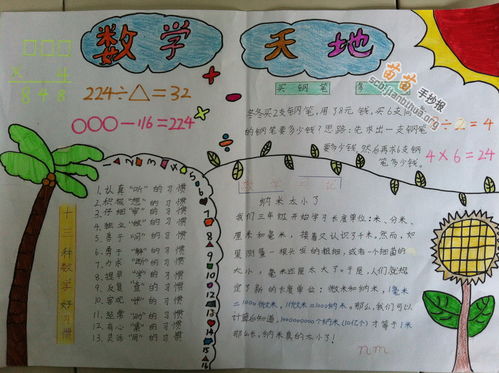 数学
天地
□□□
× 4
848
224÷△=32
○○○-116=224
买钢笔
冬冬买2支钢笔,用了8元钱,买6支
的钢笔要多少钱?思路:先求出一支钢笔
要多少钱,然后再求6支钢
笔多少钱。
÷2=4
4×6=24
苗苗手抄报
shouchaobao.jianbihua.org
1 2 3 4 5 6 7 8 9 10 11 12 13 14 15 16
十三种数学好习惯
1.认真“听”的习惯
2.积极“想”的习惯
3.仔细“审”的习惯
4.独立“做”的习惯
5.善于“问”的习惯
6.勇于“辩”的习惯
7.力求“断”的习惯
8.提早“学”的习惯
9.反复“查”的习惯
10.客观“评”的习惯
11.经常“动”的习惯
12.有心“集”的习惯
13.灵活“用”的习惯
数学日记
纳米太小了
我们三年级开始学习长度单位:米、分米、
厘米和毫米,接着又认识了千米。然而,如
果测量一根头发的粗细,或者一个细菌的
大小,毫米还是太大了。于是,人们就规
定了新的长度单位:微米和纳米,1毫米
=1000微米,1微米=1000纳米。那么,我们可以
计算后知道,1000000000个纳米(10亿个)才等于1米
那么长。纳米真的太小了!
nm